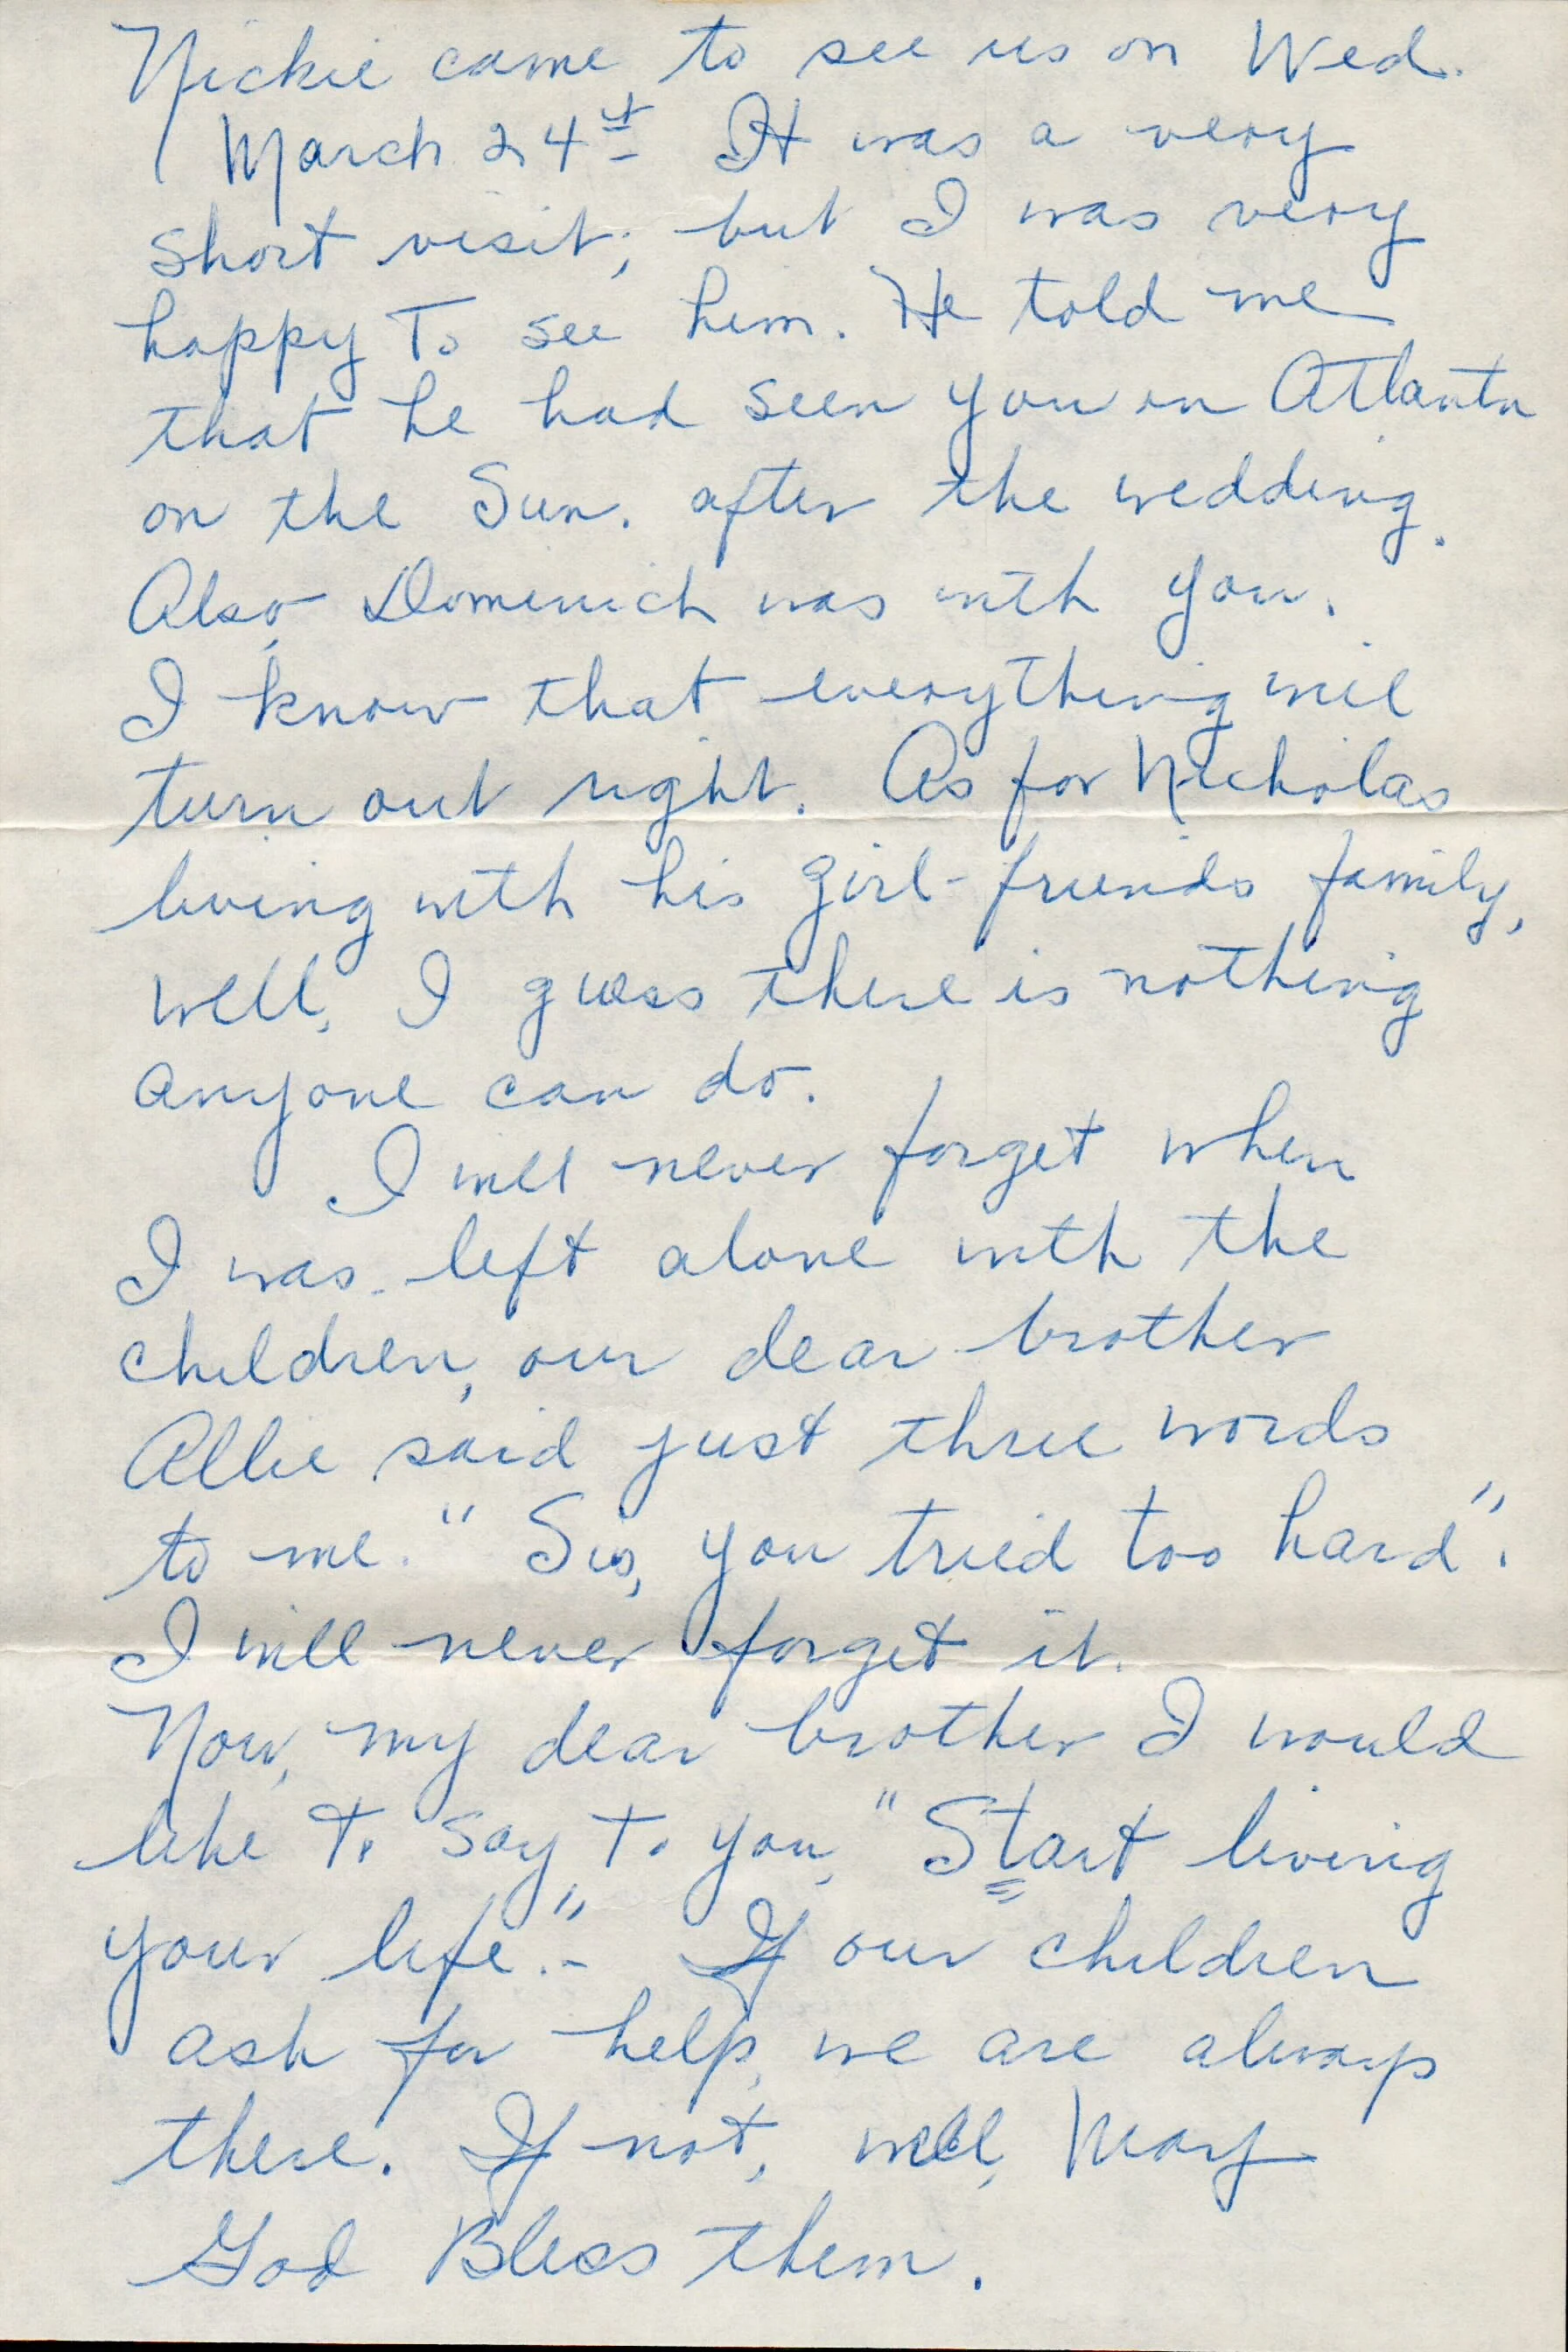 Nickie came to see us on Wed.
March 24th It was a very
short visit; but I was very
happy To see him. He told me
that he had seen you in Atlanta
on the Sun. after the wedding.
Also, Domenich was with you.
I know that everything will
turn out right. As for Nicholas
living with his girl-friends family,
well, I guess there is nothing
anyone can do.
I will never forget when
I was left alone with the
children, our dear brother
Allie said just three words
to me. "Sis, you tried too hard".
I will never forget it.
Now, my dear brother I would
like To say To you, "Start living
your life." - If our children
ask for help, we are always
there. If not, well, May
God Bless them.